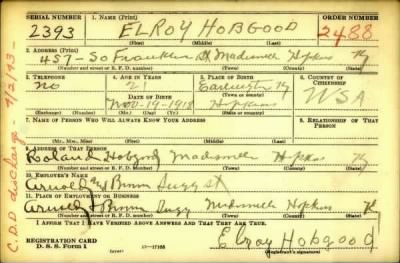 SERIAL NUMBER 1. NAME (Print) ORDER NUMBER
2393 ELROY HOBGOOD 2488
(First) (Middle) (Last)
2. ADDRESS (Print)
457-So Franklin St Madisonville Hopkins Ky
(Number and street or R. F. D. number) (Town) (County) (State)
3. TELEPHONE 4. AGE IN YEARS 5. PLACE OF BIRTH 6. COUNTRY OF CITIZENSHIP
No 21 Earlington Ky USA
DATE OF BIRTH
Nov-19-1918 Hopkins
(Mo.) (Day) (Yr.) (State or country)
7. NAME OF PERSON WHO WILL ALWAYS KNOW YOUR ADDRESS 8. RELATIONSHIP OF THAT PERSON
(Mr., Mrs., Miss) (First) (Middle) (Last)
9. ADDRESS OF THAT PERSON
Roland Hobgood Madisonville Hopkins Ky
(Number and street or R. F. D. number) (Town) (County) (State)
10. EMPLOYER'S NAME
Arnold & Brown Sugg st
11. PLACE OF EMPLOYMENT OR BUSINESS
Arnold & Brown Sugg Madisonville Hopkins Ky
(Number and street or R. F. D. number) (Town) (County) (State)
I AFFIRM THAT I HAVE VERIFIED ABOVE ANSWERS AND THAT THEY ARE TRUE.
REGISTRATION CARD
D. S. S. Form 1
Elroy Hobgood
(Registrant's signature)
C.D.D discharge